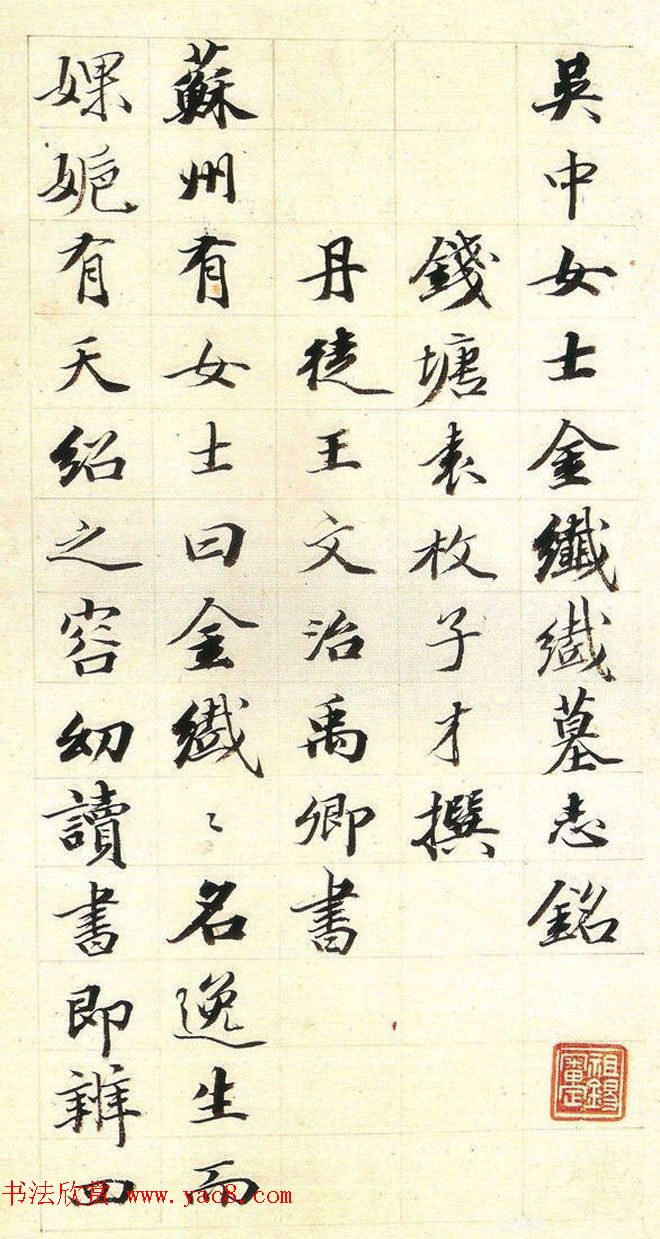 吳中女士金纖纖墓志銘
錢塘袁枚子才撰
丹徒王文治禹卿書
蘇州有女士曰金纖〻名逸生而
婐㛂有夭紹之容幼讀書即辨四
祖錫審定
书法欣赏 www.yac8.com